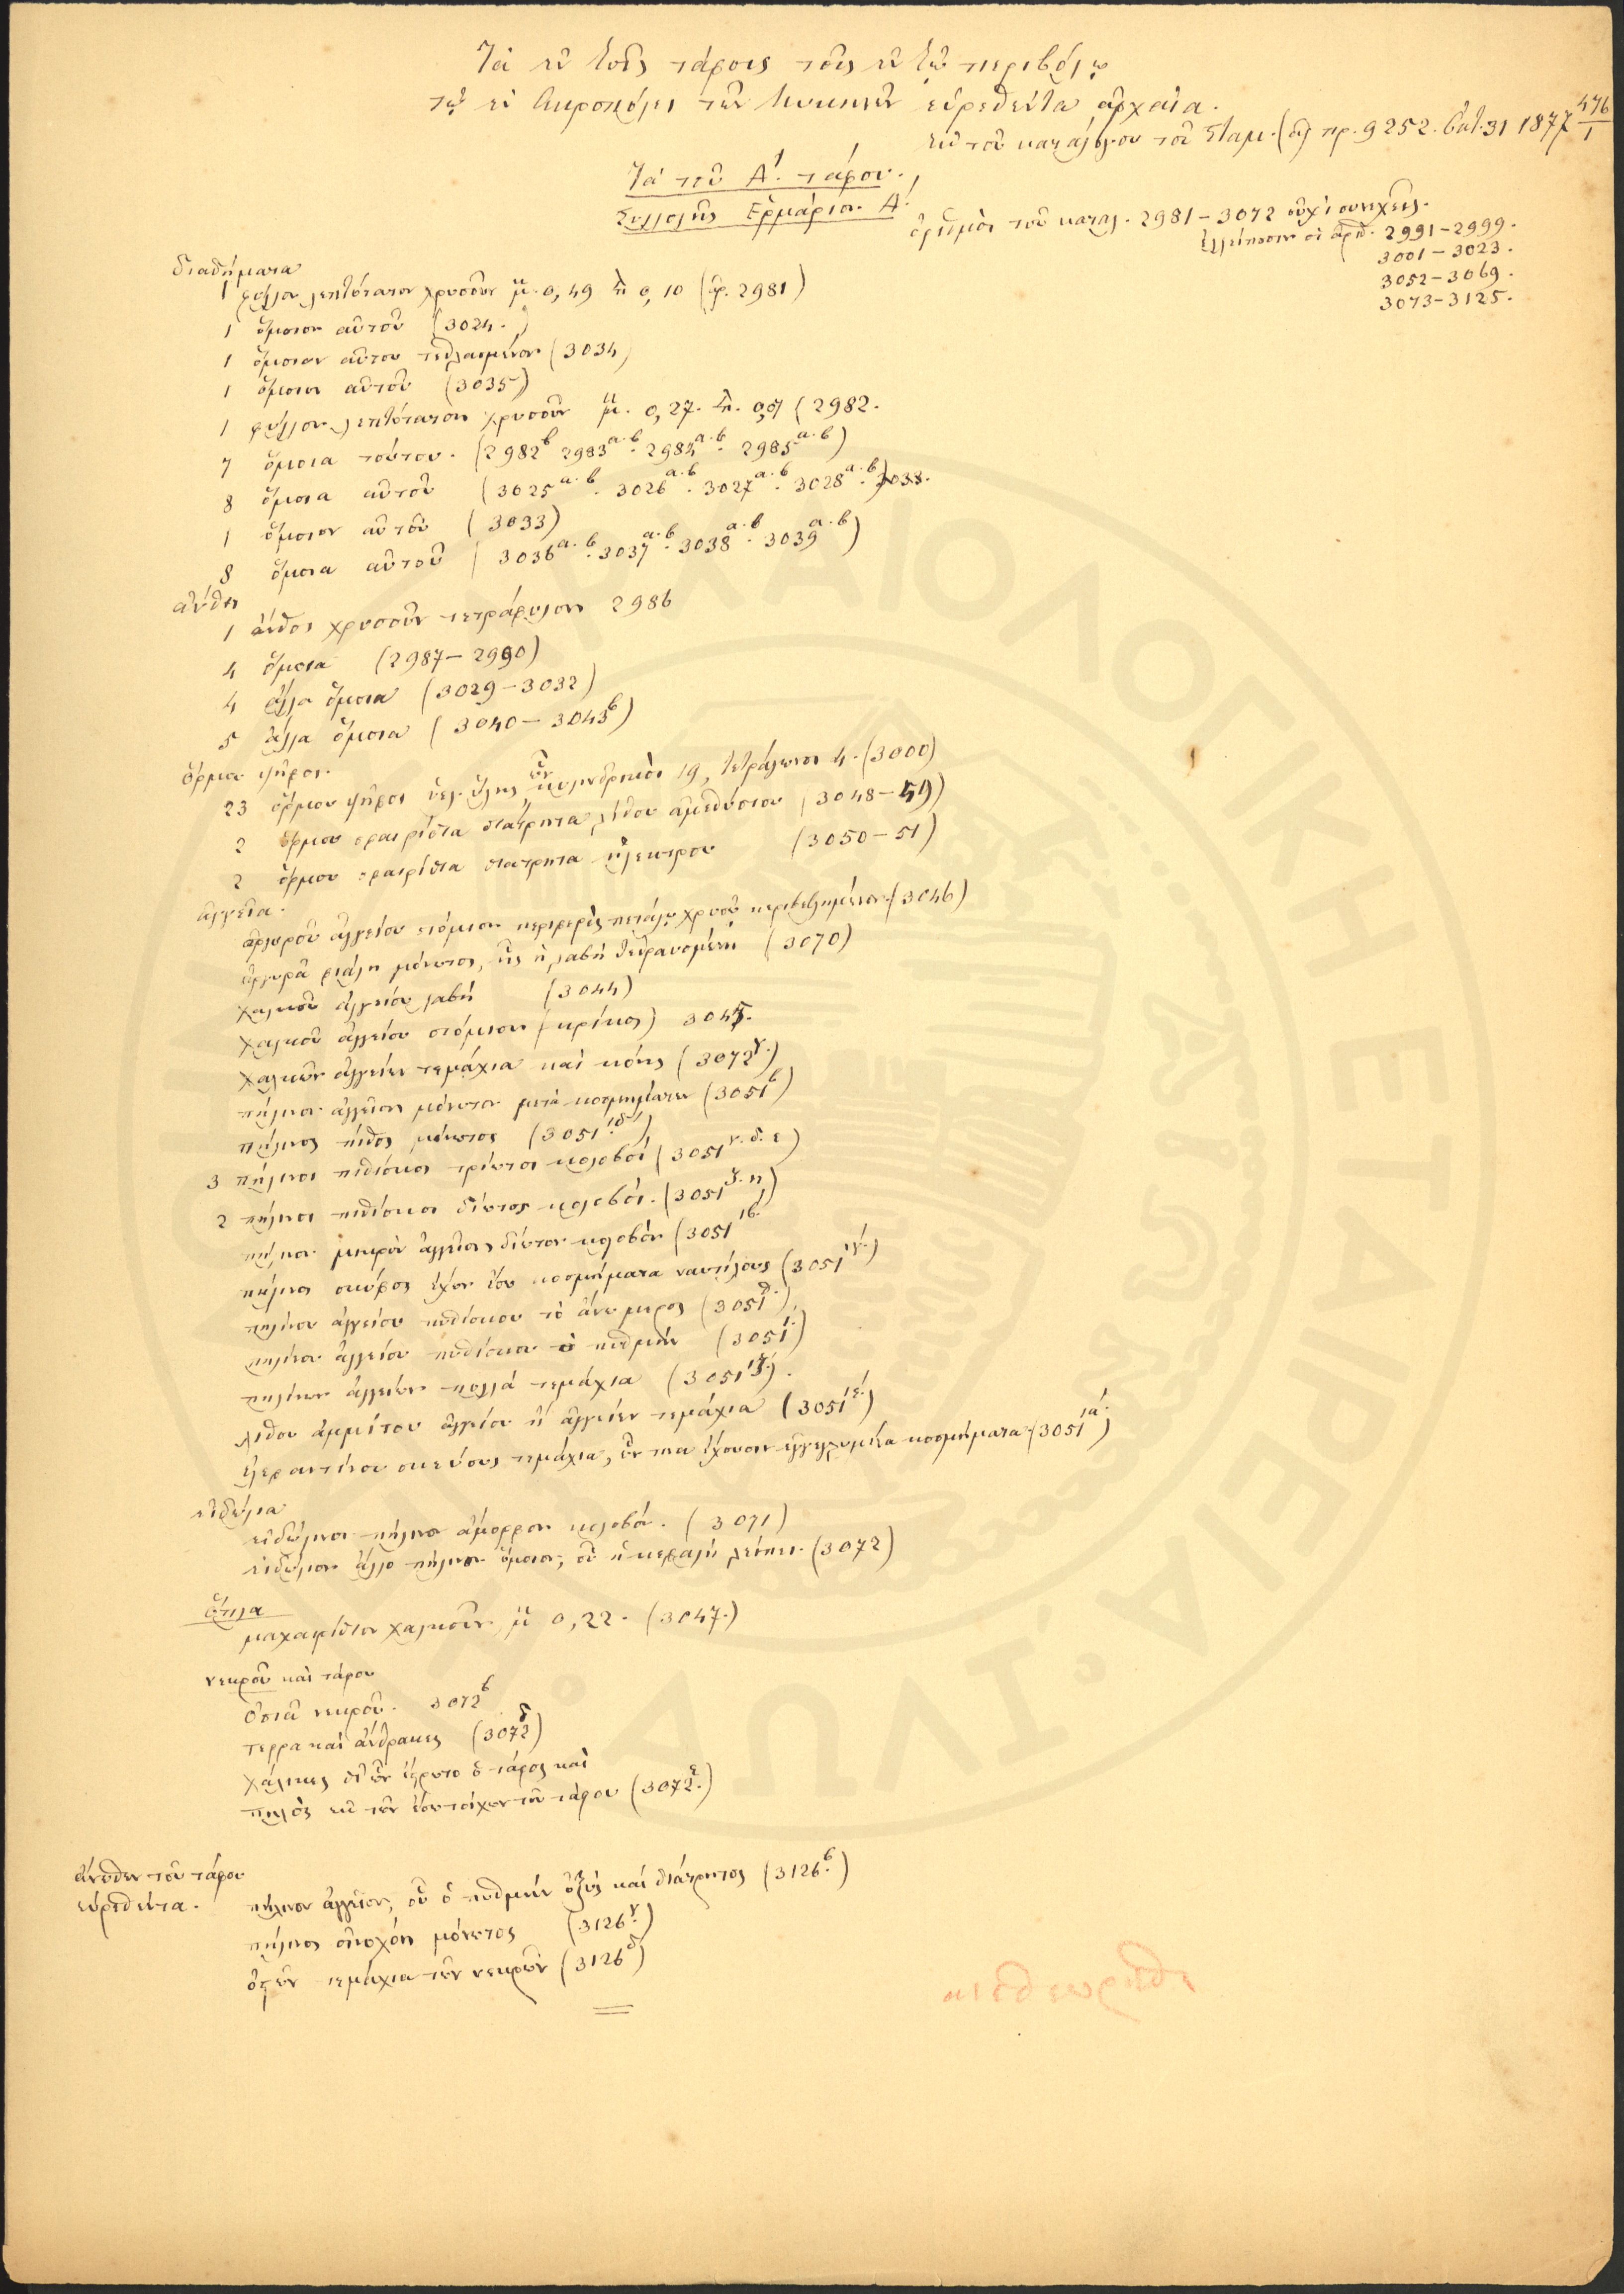 Τὰ ἐν τοῖς τάφοις τοῖς ἐν τῷ περιβόλῳ
τῷ ἐν Ακροπόλει τῶν Μυκηνῶν εὑρεθέντα ἀρχαῖα.
476/1
ἐκ τοῦ καταλόγου τοῦ Σταμ. πρ. 9252. 31 1877
Τὰ τοῦ Α΄. τάφου.
Συλλογῆς Ερμάριον Α΄.
ἀριθμοὶ τοῦ καταλ. 2981–3072 οὐχὶ συνεχεῖς.
ἐλλείπουσιν οἱ ἀριθ. 2991–2999.
3001–3023.
3052–3069.
3073–3125.
διαδήματα
1 φύλλον λεπτότατον χρυσοῦν μ. 0,49 π 0,10 (ἀρ. 2981)
1 ὅμοιον αὐτοῦ (3024.)
1 ὅμοιον αὐτου τεθλασμένον (3034)
1 ὅμοιον αὐτοῦ (3035)
1 φύλλον λεπτότατον χρυσοῦν μ. 0,27. π. 0,07 (2982.
7 ὅμοια τούτου. (2982β 2983α.β. 2984α.β. 2985α.β)
8 ὅμοια αὐτοῦ (3025α.β. 3026α.β. 3027α.β. 3028α.β.) 3033.
1 ὅμοιον αὐτοῦ (3033)
8 ὅμοια αὐτοῦ (3036α.β. 3037α.β. 3038α.β. 3039α.β)
ἄνθη
1 ἄνθος χρυσοῦν τετράφυλλον 2986
4 ὅμοια (2987–2990)
4 ἄλλα ὅμοια (3029–3032)
5 ἄλλα ὅμοια (3040–3043β)
ὅρμων ψῆφοι.
23 ὅρμου ψῆφοι ὑελ. ὕλης, ὧν κυλινδρικαὶ 19, τετράγωνοι 4. (3000)
2 ὅρμου σφαιρίδια διάτρητα λίθου ἀμεθύστου (3048–49)
2 ὅρμου σφαιρίδια διάτρητα ἠλέκτρου (3050–51)
ἀγγεῖα.
ἀργυροῦ ἀγγείου στόμιον περιφερὲς πετάλῳ χρυσοῦ περιβεβλημένον (3046)
ἀργυρᾶ φιάλη μόνωτος, ἧς ἡ λαβὴ τεθραυσμένη (3070)
χαλκοῦ ἀγγείου λαβή (3044)
χαλκοῦ ἀγγείου στόμιον (κρίκος) 3045.
χαλκῶν ἀγγείων τεμάχια καὶ κόνις (3072γ.)
πήλινον ἀγγεῖον μόνωτον μετὰ κοσμημάτων (3051β)
πήλινος πίθος μόνωτος (3051ιδ΄)
3 πήλινοι πιθίσκοι τρίωτοι κολοβοί (3051γ.δ.ε)
2 πήλινοι πιθίσκοι δίωτοι κολοβοί. (3051ζ.η)
πήλινον μικρὸν ἀγγεῖον δίωτον κολοβόν (3051ιβ΄
πήλινος σκύφος ἔχων ἔσω κοσμήματα ναυτίλους (3051ιγ΄.)
πηλίνου ἀγγείου πιθίσκου τὸ ἄνω μέρος (3051θ.)
πηλίνου ἀγγείου πιθίσκου ὁ πυθμήν (3051ι΄.)
πηλίνων ἀγγείων πολλὰ τεμάχια (3051ιζ΄.).
λίθου ἀμμίτου ἀγγείου ἢ ἀγγείων τεμάχια (3051ιε΄.)
ἐλεφαντίνου σκεύους τεμάχια, ὧν τινα ἔχουσιν ἐγγεγλυμμένα κοσμήματα (3051ια΄.)
εἰδώλια
εἰδώλιον πήλινον ἄμορφον κολοβόν. (3071)
εἰδώλιον ἄλλο πήλινον ὅμοιον, οὗ ἡ κεφαλὴ λείπει. (3072)
ὅπλα
μαχαιρίδιον χαλκοῦν, μ 0,22. (3047.)
νεκροῦ καὶ τάφου
ὀστᾶ νεκροῦ. 3072β
τεφρα καὶ ἄνθρακες (3072δ)
χάλικες δι' ὧν ἔστρωτο ὁ τάφος καὶ
πηλὸς ἐκ τῶν ἔσω τοίχων τοῦ τάφου (3072ε.)
ἄνωθεν τοῦ τάφου
εὑρεθέντα.
πήλινον ἀγγεῖον, οὗ ὁ πυθμὴν ὀξὺς καὶ διάτρητος (3126β.)
πήλινος οἰνοχόη μόνωτος (3126γ.)
ὀστῶν τεμάχια τῶν νεκρῶν (3126δ)